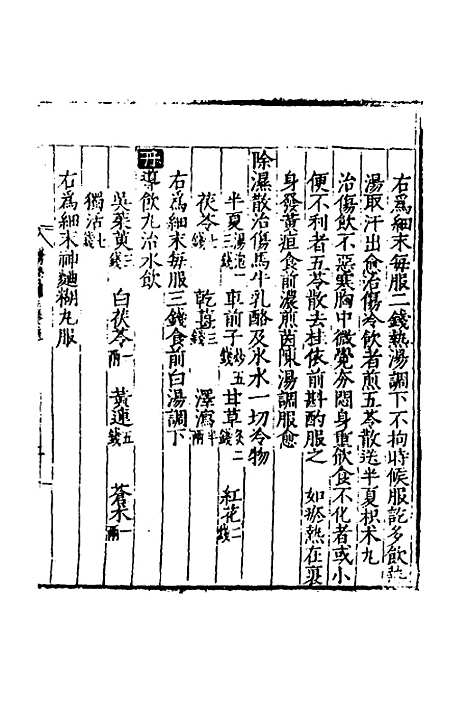 右爲細末每服二錢熱湯調下不拘時候服訖多飲熱
湯取汗出愈治傷冷飲者煎五苓散送半夏枳术丸
治傷飲不惡寒胸中微覺夯悶身重飲食不化者或小
便不利者五苓散去桂依前斟酌服之 如瘀熱在裏
身發黃疸食前濃煎茵陳湯調服愈
除濕散治傷馬牛乳酪及氷水一切冷物
半夏湯泡三錢 車前子炒五錢 甘草炙二錢 紅花二錢
茯苓七錢 乾薑三錢 澤瀉半兩
右爲細末每服三錢食前白湯調下
導飲丸治水飲
吳茱萸三錢 白茯苓一兩 黃連五錢 蒼术一兩
獨活七錢
右爲細末神麯糊丸服